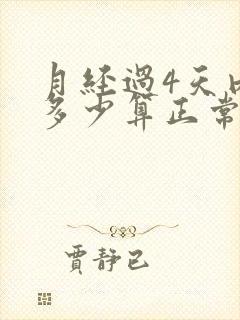 月經過4天
多少算正常
賈靜已